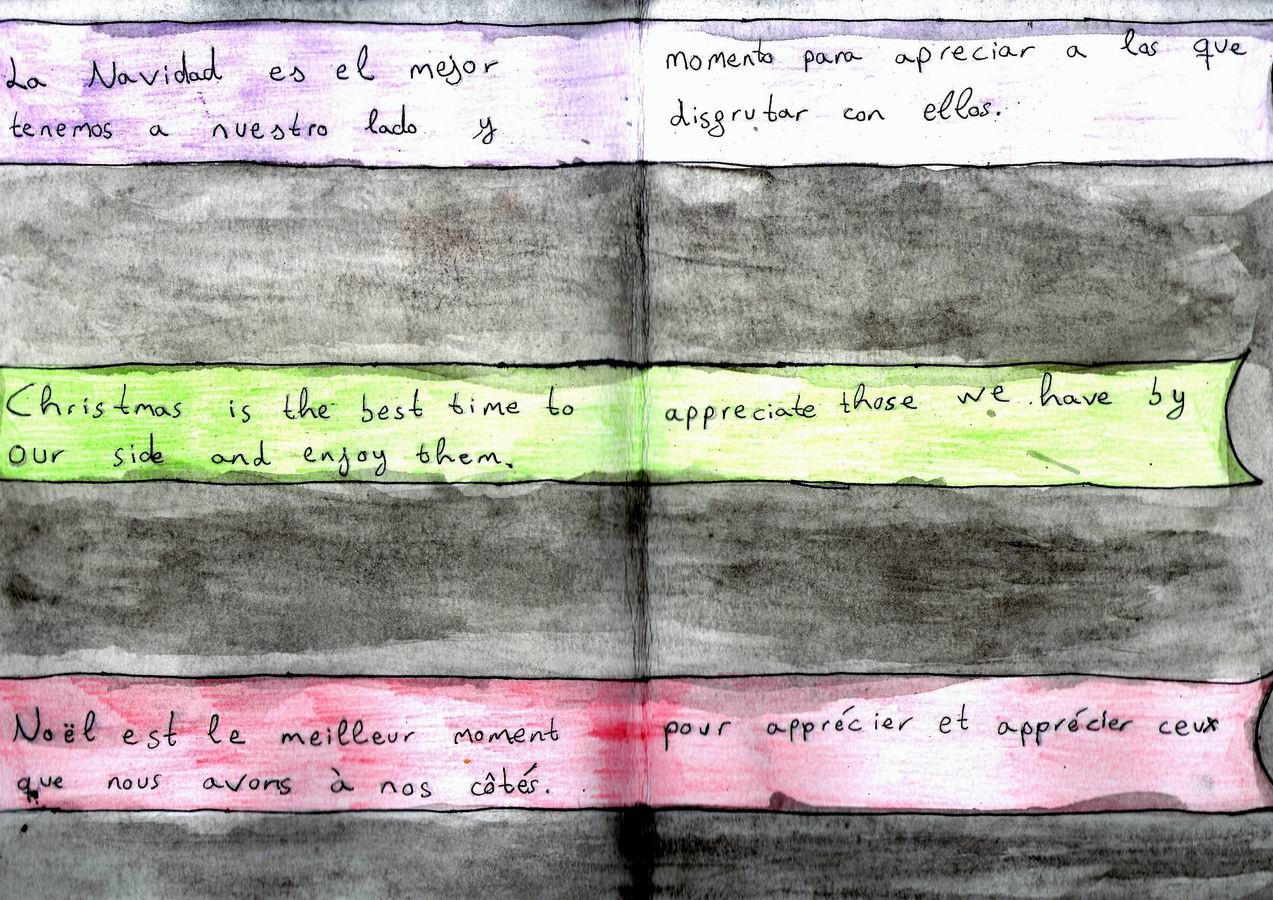 La Navidad es el mejor momento para apreciar a los que
tenemos a nuestro lado y disgrutar con ellos.
Christmas is the best time to appreciate those we have by
our side and enjoy them.
Noël est le meilleur moment pour apprécier et apprécier ceux
que nous avons à nos côtés.